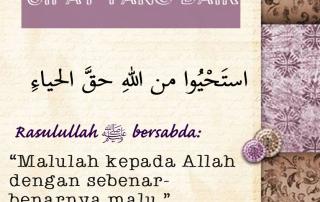 SIFAT YANG BAIK
استَحْيُوا من اللهِ حقَّ الحياءِ
Rasulullah ﷺ bersabda:
“Malulah kepada Allah
dengan sebenar-
benarnya malu.”